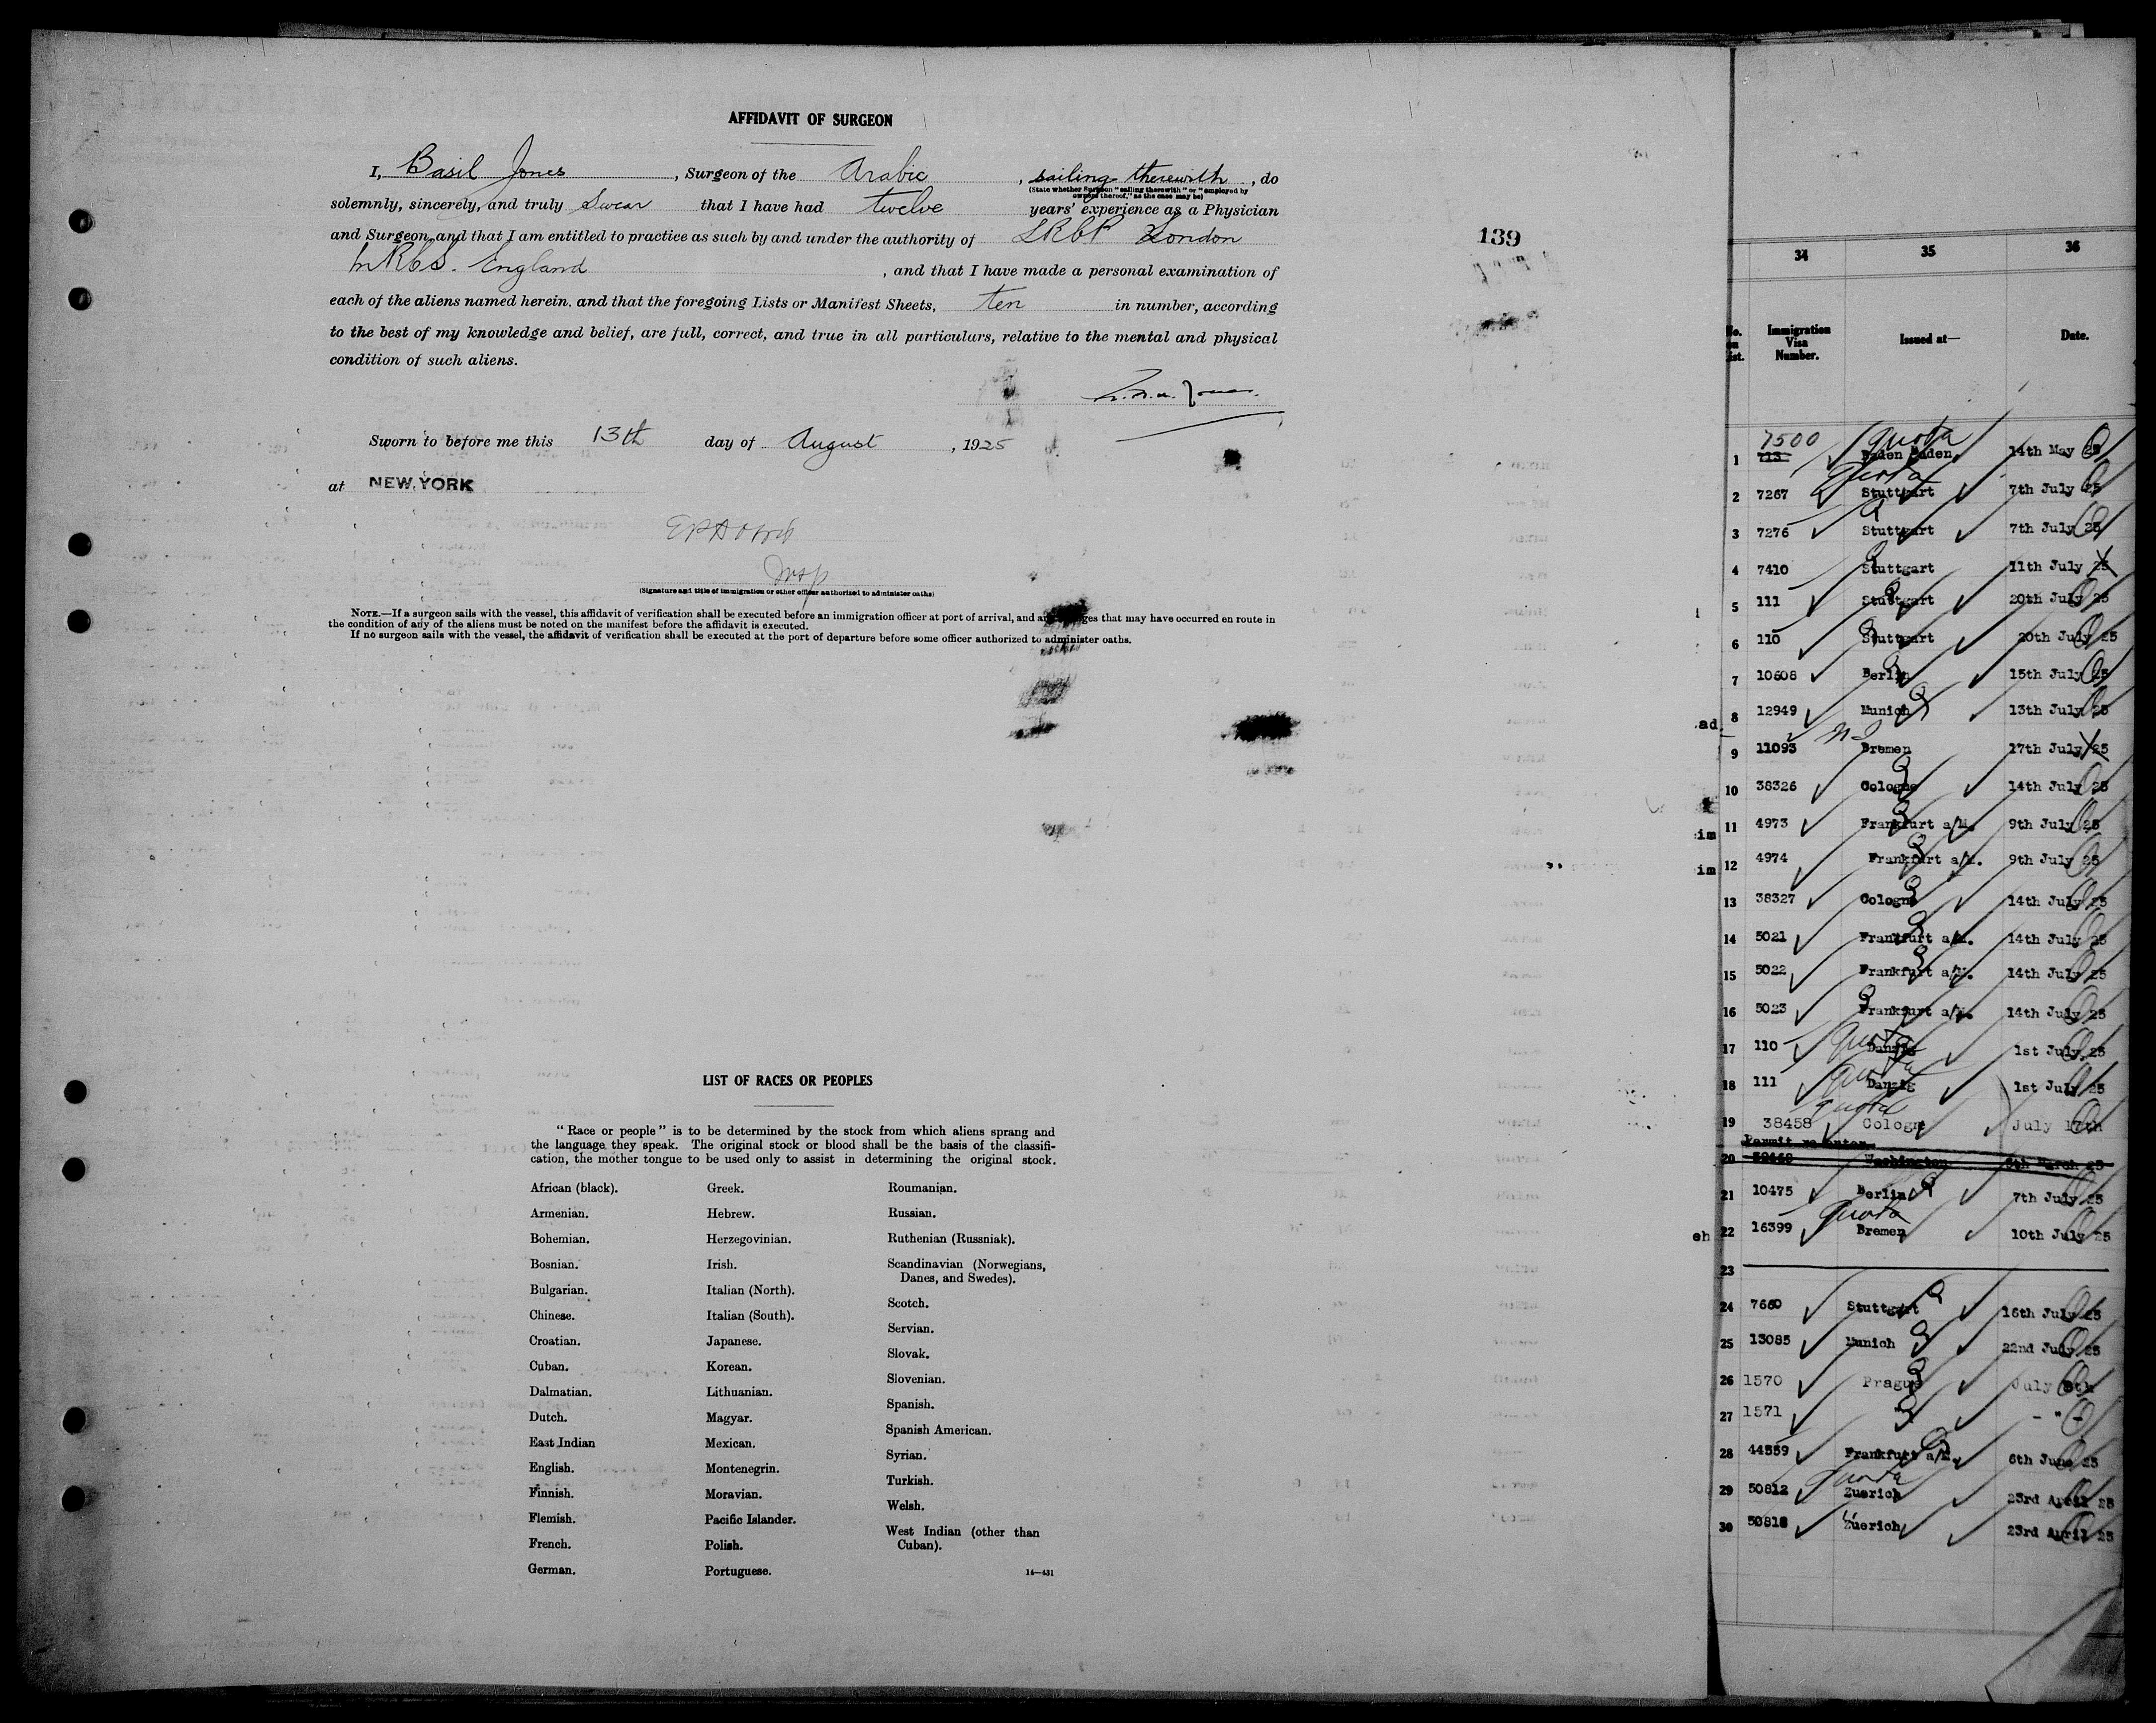 AFFIDAVIT OF SURGEON
I, Basil Jones, Surgeon of the Arabic, sailing therewith, do
(State whether Surgeon "sailing therewith" or "employed by
owners thereof," as the case may be)
solemnly, sincerely, and truly Swear that I have had twelve years' experience as a Physician
and Surgeon and that I am entitled to practice as such by and under the authority of LRCP London
MRCS. England, and that I have made a personal examination of
each of the aliens named herein, and that the foregoing Lists or Manifest Sheets, ten in number, according
to the best of my knowledge and belief, are full, correct, and true in all particulars, relative to the mental and physical
condition of such aliens.
Jones.
Sworn to before me this 13th day of August, 1925
at NEW YORK
Insp
(Signature and title of immigration or other officer authorized to administer oaths)
NOTE.—If a surgeon sails with the vessel, this affidavit of verification shall be executed before an immigration officer at port of arrival, and any changes that may have occurred en route in
the condition of any of the aliens must be noted on the manifest before the affidavit is executed.
If no surgeon sails with the vessel, the affidavit of verification shall be executed at the port of departure before some officer authorized to administer oaths.
139
LIST OF RACES OR PEOPLES
"Race or people" is to be determined by the stock from which aliens sprang and
the language they speak. The original stock or blood shall be the basis of the classifi-
cation, the mother tongue to be used only to assist in determining the original stock.
African (black).
Armenian.
Bohemian.
Bosnian.
Bulgarian.
Chinese.
Croatian.
Cuban.
Dalmatian.
Dutch.
East Indian
English.
Finnish.
Flemish.
French.
German.
Greek.
Hebrew.
Herzegovinian.
Irish.
Italian (North).
Italian (South).
Japanese.
Korean.
Lithuanian.
Magyar.
Mexican.
Montenegrin.
Moravian.
Pacific Islander.
Polish.
Portuguese.
Roumanian.
Russian.
Ruthenian (Russniak).
Scandinavian (Norwegians,
Danes, and Swedes).
Scotch.
Servian.
Slovak.
Slovenian.
Spanish.
Spanish American.
Syrian.
Turkish.
Welsh.
West Indian (other than
Cuban).
14—431
34 35 36
No.
on
list.
Immigration
Visa
Number.
Issued at—
Date.
7500 Quota
1 713 Baden Baden 14th May 25
Quota
2 7267 Stuttgart 7th July 25
3 7276 Q Stuttgart 7th July 25
4 7410 Q Stuttgart 11th July 25
5 111 Q Stuttgart 20th July 25
6 110 Q Stuttgart 20th July 25
7 10608 Q Berlin 15th July 25
ad 8 12949 Munich Q 13th July 25
9 11093 Bremen 17th July 25
10 38326 Q Cologne 14th July 25
im 11 4973 Q Frankfurt a/M. 9th July 25
im 12 4974 Q Frankfurt a/M. 9th July 25
13 38327 Q Cologne 14th July 25
14 5021 Q Frankfurt a/M. 14th July 25
15 5022 Q Frankfurt a/M. 14th July 25
16 5023 Q Frankfurt a/M. 14th July 25
17 110 Quota Danzig 1st July 25
18 111 Quota Danzig 1st July 25
Quota
19 38458 Cologne July 17th
Permit re enter
20 Washington 6th March 25
21 10475 Berlin Q 7th July 25
Quota
eh 22 16399 Bremen 10th July 25
23
24 7660 Stuttgart Q 16th July 25
25 13085 Munich Q 22nd July 25
26 1570 Prague Q July 8th
27 1571 " Q - " -
28 44559 Frankfurt a/M. Q 6th June 25
Quota
29 50812 Zuerich 23rd April 25
30 50818 Zuerich 23rd April 25